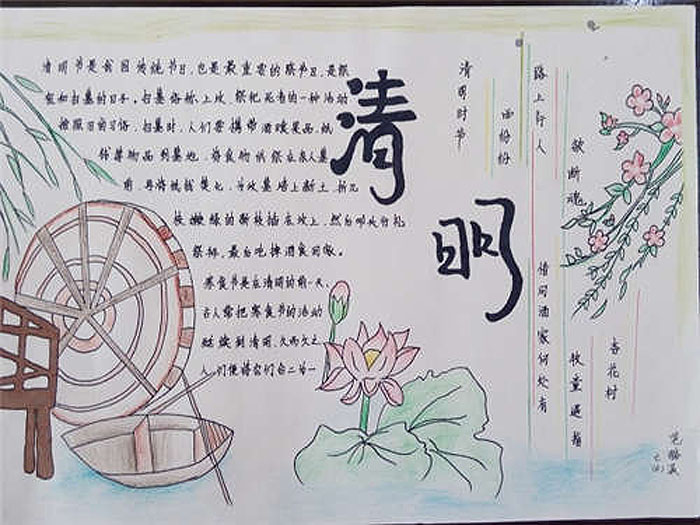 清明节是我国传统节日，也是最重要的祭节日，是祭
祖和扫墓的日子。扫墓俗称上坟，祭祀死者的一种活动
按照旧的习俗，扫墓时，人们要携带酒食果品、纸
钱等物品到墓地，将食物供祭在亲人墓
前，再将纸钱焚化，为坟墓培上新土，折几
枝嫩绿的新枝插在坟上，然后叩头行礼
祭拜，最后吃掉酒食回家。
寒食节是在清明的前一天，
古人常把寒食节的活动
延续到清明，久而久之，
人们便将它们合二为一
清明
清明时节
雨纷纷
路上行人
欲断魂
借问酒家何处有
牧童遥指
杏花村